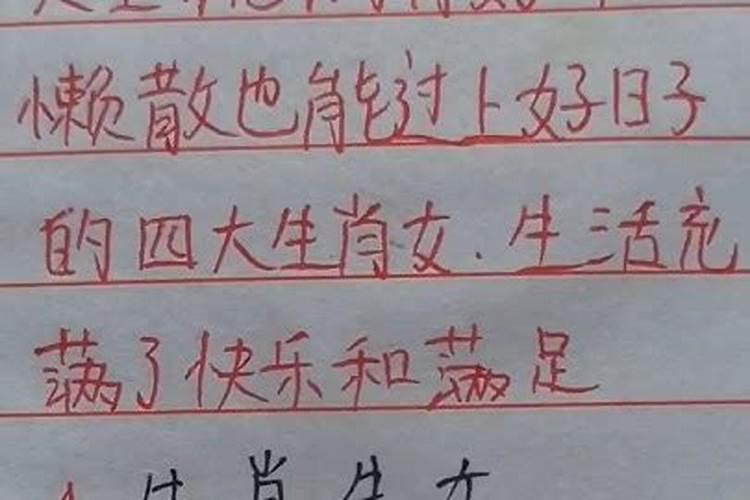 懒散也能过上好日子
的四大生肖女.生活充
满了快乐和满足
生肖牛女